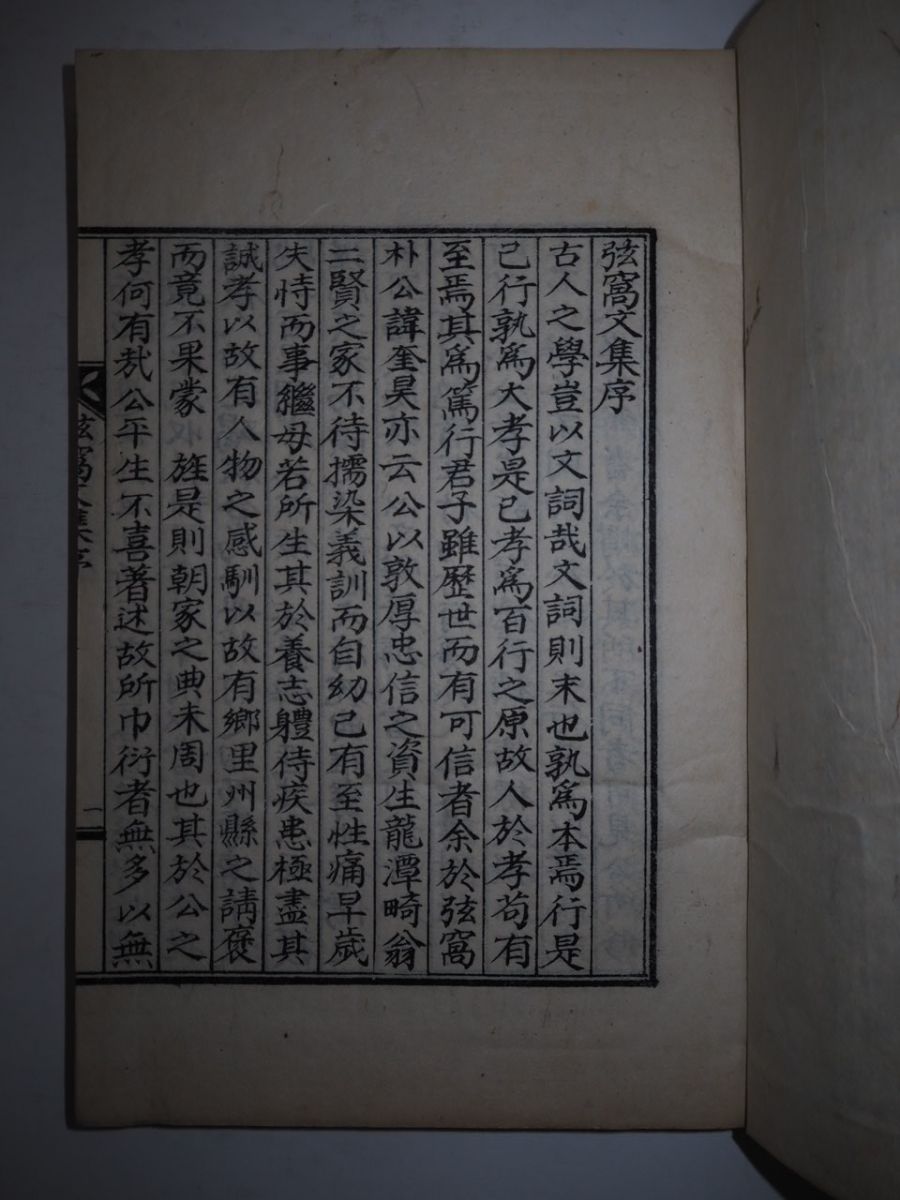 弦窩文集序
古人之學豈以文詞哉文詞則末也孰爲本焉行是
已行孰爲大孝是已孝爲百行之原故人於孝苟有
至焉其爲篤行君子雖歷世而有可信者余於弦窩
朴公諱奎昊亦云公以敦厚忠信之資生龍潭畸翁
二賢之家不待擩染義訓而自幼已有至性痛早歲
失恃而事繼母若所生其於養志軆侍疾患極盡其
誠孝以故有人物之感馴以故有鄉里州縣之請褒
而竟不果蒙 旌是則朝家之典未周也其於公之
孝何有㢤公平生不喜著述故所巾衍者無多以無
弦窩文集序
一